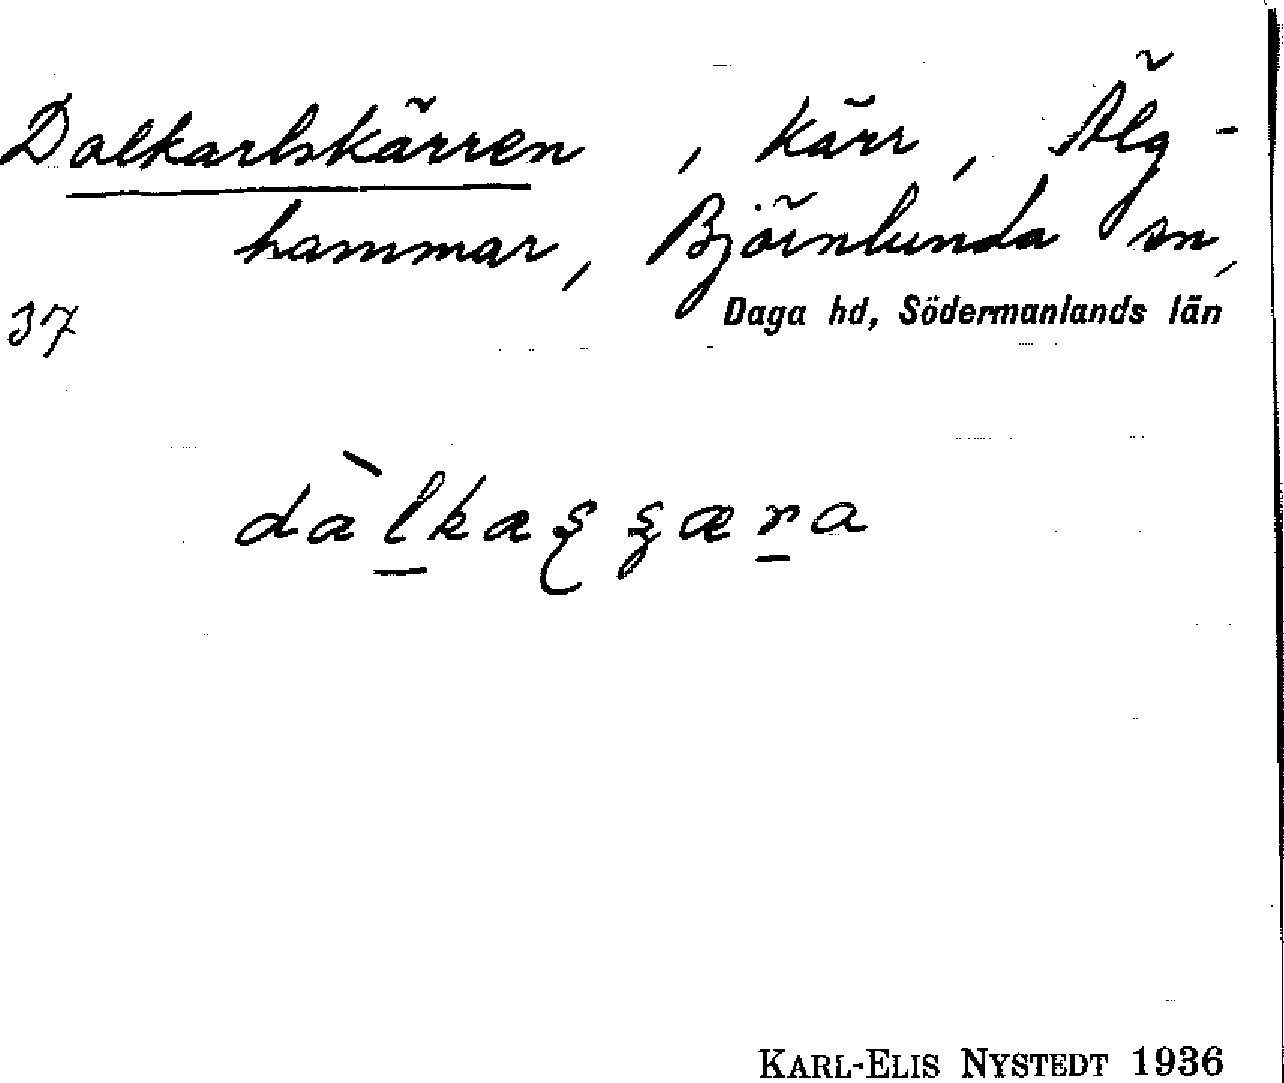 Dalkarlskärren, kärr, Älg-
hammar, Björnlunda sn,
37 Daga hd, Södermanlands län
KARL-ELIS NYSTEDT 1936